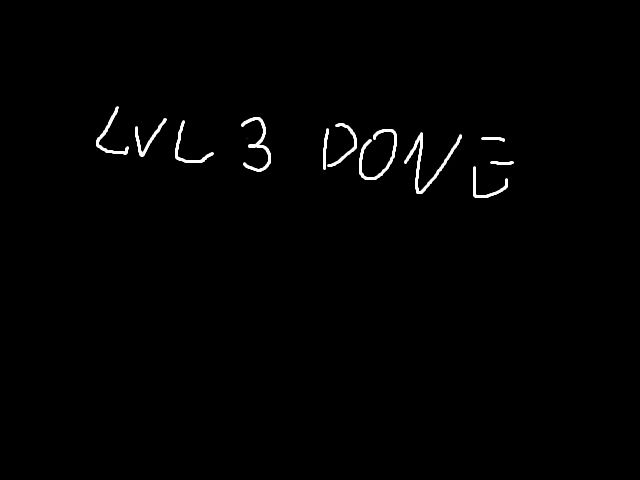 LVL 3 DONE